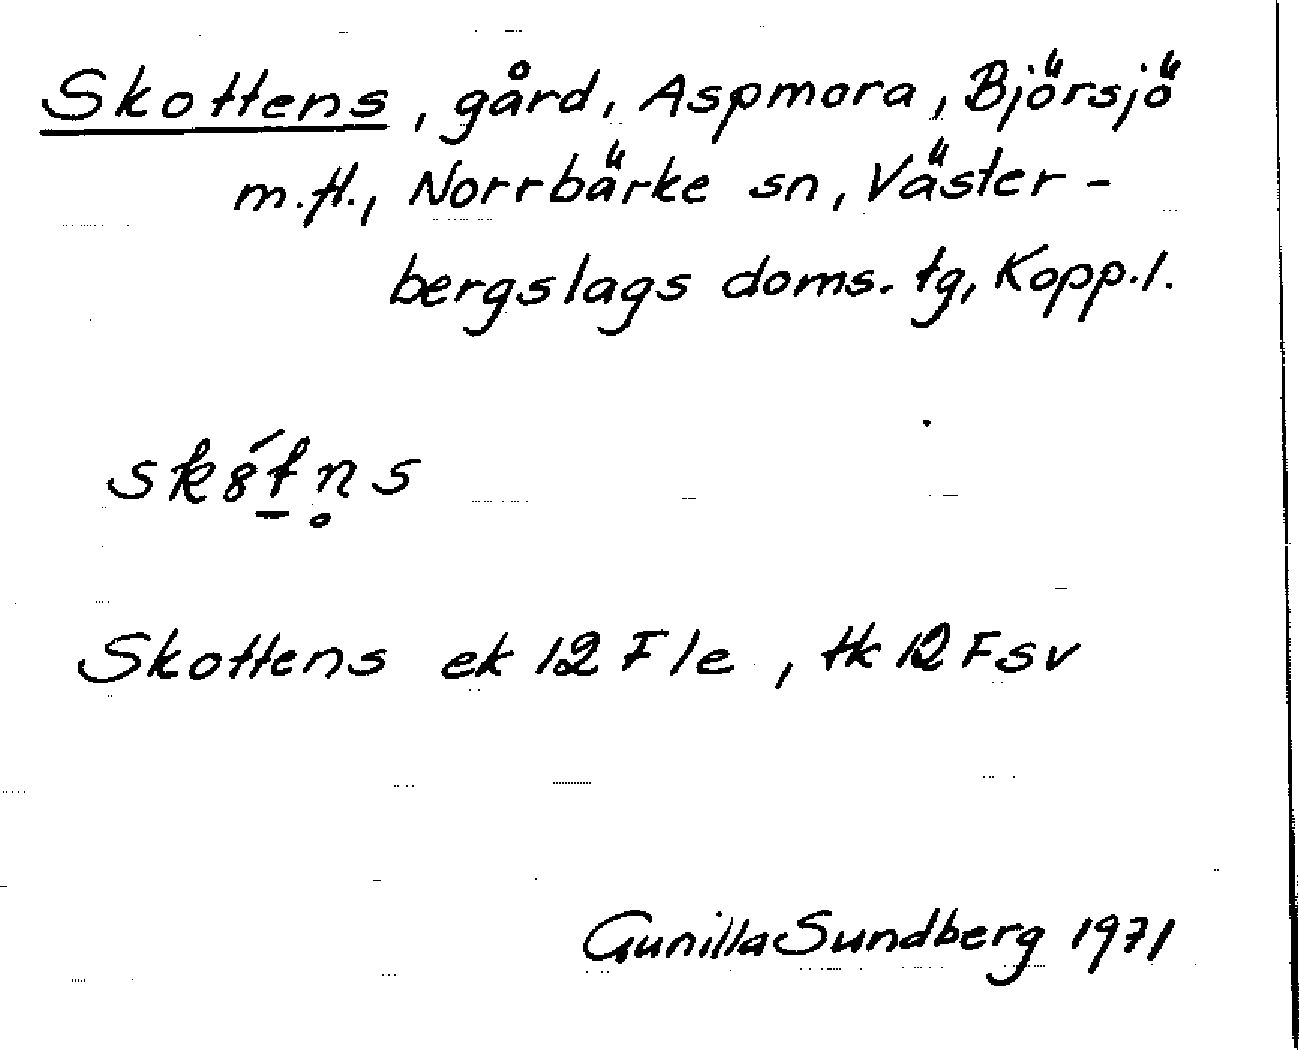 Skottens, gård, Aspmora, Björsjö
m.fl., Norrbärke sn, Väster-
bergslags doms. tg, Kopp.l.
sk8́t̠n̥s
Skottens ek 12 F le, tk 12 F sv
Gunilla Sundberg 1971